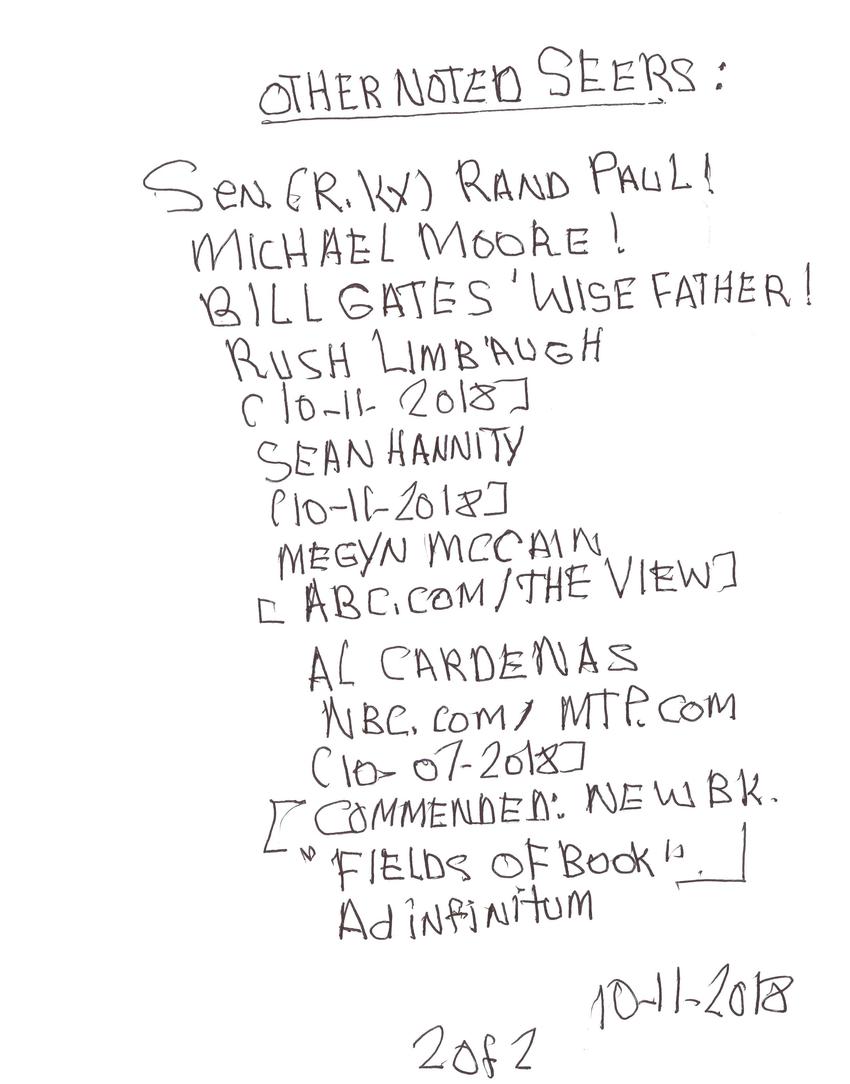 OTHER NOTED SEERS:
Sen. (R. KY) RAND PAUL!
MICHAEL MOORE!
BILL GATES' WISE FATHER!
RUSH LIMB'AUGH
(10-11-2018]
SEAN HANNITY
(10-11-2018]
MEGYN MCCAIN
[ABC.COM/THE VIEW]
AL CARDENAS
NBC.COM/ MTP.COM
(10-07-2018]
[COMMENDED: NEW BK.
"FIELDS OF BOOK".]
Ad infinitum
10-11-2018
2 of 2